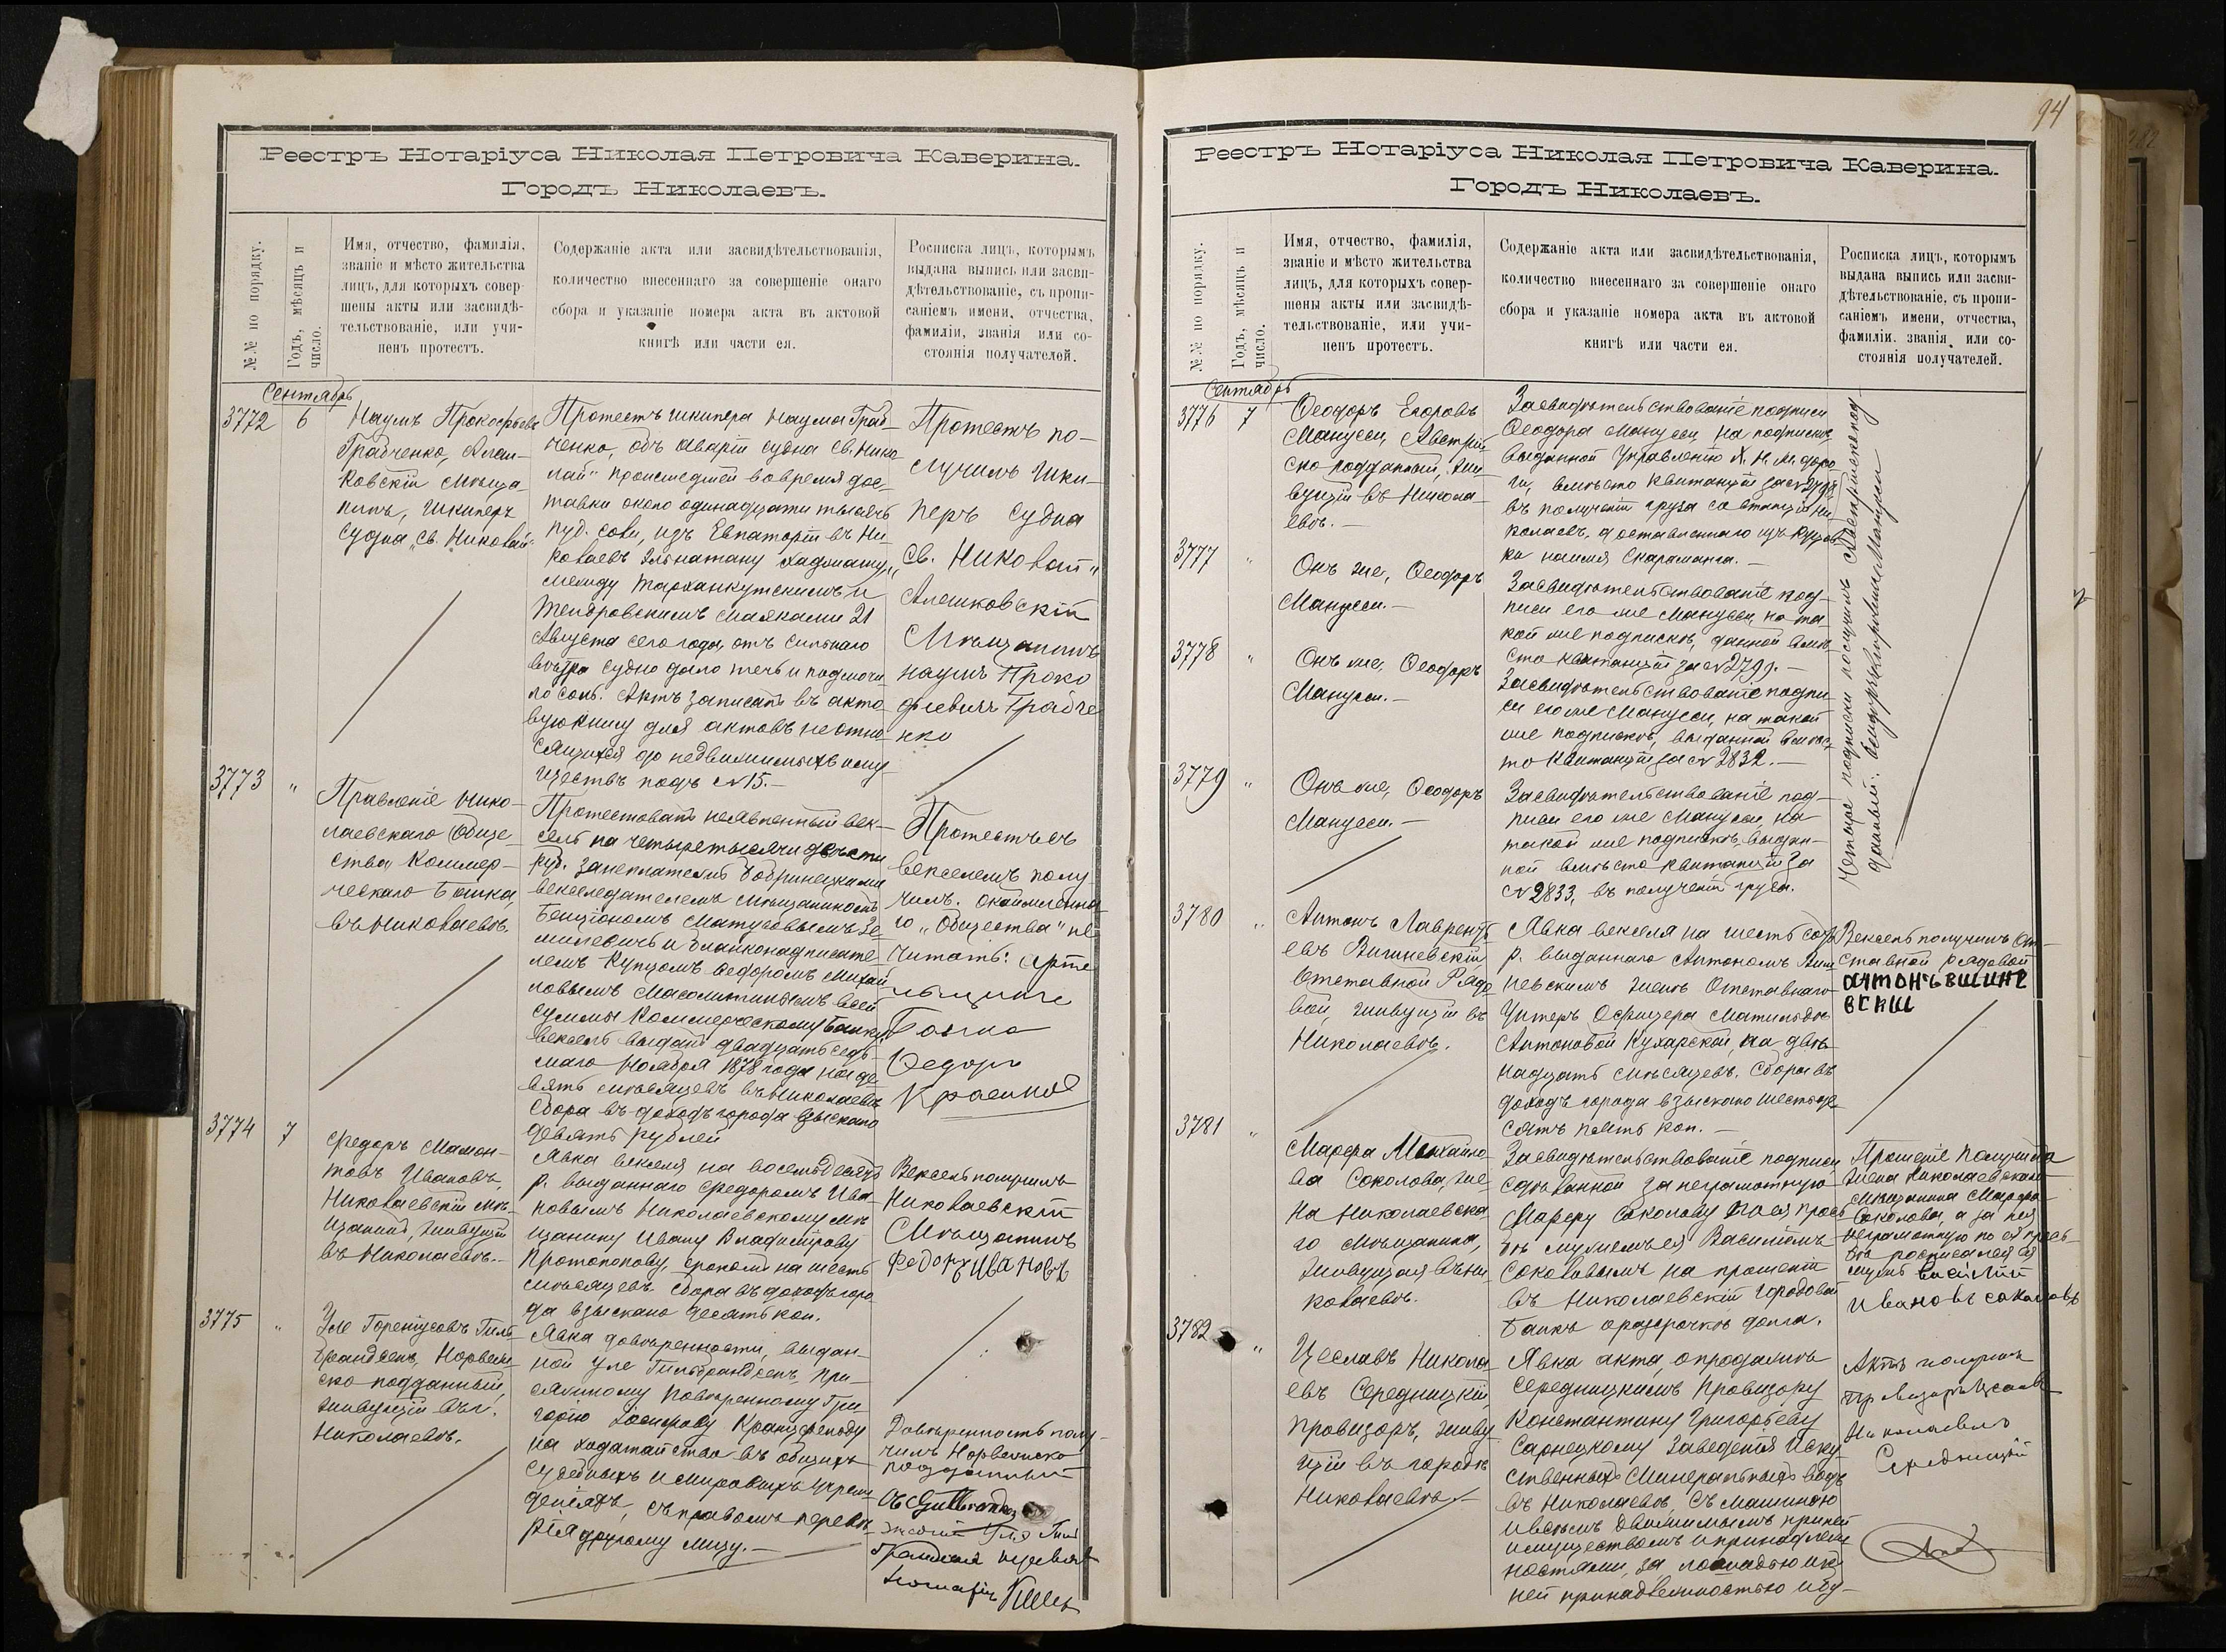 Реестръ Нотаріуса Николая Петровича Каверина.
Городъ Николаевъ.
№№ по порядку.
Годъ, мѣсяцъ и
число.
Имя, отчество, фамилія,
званіе и мѣсто жительства
лицъ, для которыхъ совер-
шены акты или засвидѣ-
тельствованіе, или учи-
ненъ протестъ.
Содержаніе акта или засвидѣтельствованія,
количество внесеннаго за совершеніе онаго
сбора и указаніе номера акта въ актовой
книгѣ или части ея.
Росписка лицъ, которымъ
выдана выпись или засви-
дѣтельствованіе, съ пропи-
саніемъ имени, отчества,
фамиліи, званія или со-
стоянія получателей.
Сентябрь
3772
6
Наумъ Прокофьевъ
Грабченко, Алеш-
ковскій мѣща-
нинъ, шкиперъ
судна „Св. Николай"
Протестъ шкипера Наума Граб-
ченко, объ аваріи судна „Св. Нико
лай" происшедшей во время дос-
тавки около одинадцати тысячъ
пуд. соли, изъ Евпаторіи въ Ни-
колаевъ Эльнатану
между Тарханкутскимъ и
Тендровскимъ маяками 21
Августа сего года, отъ сильнаго
вѣтра судно дало течь и подмочи
ло соль. Актъ записанъ въ акто
вую книгу для актовъ не отно
сящихся до недвижимыхъ иму
ществъ подъ № 15.-
Протестъ по-
лучилъ шки-
перъ судна
„Св. Николай"
Алешковскій
Мѣщанинъ
наумъ Проко
фіевичъ Грабче
нко
3773
"
Правленіе Нико-
лаевскаго Обще-
ства Коммер-
ческаго Банка,
въ Николаевѣ.
Протестованъ неявленный век-
сель на четыре тысячи двѣсти
руб. за неплатежъ Бобринецкимъ
векселедателемъ мѣщаниномъ
Бенціономъ Матусовымъ Зе
милевичъ и бланконадписате
лемъ купцомъ Федоромъ Михай
ловымъ Масолитинымъ всей
суммы Коммерческому Банку;
вексель выданъ двадцать седь-
маго Ноября 1878 года на де
вять мѣсяцевъ въ Николаевѣ
Сбора въ доходъ города взыскано
девять рублей
Протестъ съ
векселемъ полу
чилъ. означенна-
го „Общества" не
читать: Арте
льщикъ
Банка
Ѳедоръ
Краснов
3774
7
Федоръ Мамон-
товъ Ивановъ,
Николаевскій мѣ-
щанинъ, живущій
въ Николаевѣ.-
Явка векселя на восемьдесятъ
р. выданнаго Федоромъ Ива
новымъ Николаевскому мѣ
щанину Ивану Владимірову
Протопопову, срокомъ на шесть
мѣсяцевъ. Сбора въ доходъ горо
да взыскано десять коп.
Вексель получилъ
Николаевскій
Мѣщанинъ
Федоръ Ивановъ
3775
"
Уле Горенцсовъ Гиль
брандсенъ, Норвеж
ско подданный,
живущій въ г.
Николаевѣ.
Явка довѣренности, выдан-
ной Уле Гильбрандсенъ, при-
сяжному повѣренному Гри
горію Іосифову Кранцфельду
на ходатайство въ общихъ
судебныхъ и мировыхъ учреж
деніяхъ, съ правомъ перевѣ
рія другому лицу.-
Довѣренность полу-
чилъ Норвежско
подданный
Ole Gulbrandsen
Реестръ Нотаріуса Николая Петровича Каверина.
Городъ Николаевъ.
94
№№ по порядку.
Годъ, мѣсяцъ и
число.
Имя, отчество, фамилія,
званіе и мѣсто жительства
лицъ, для которыхъ совер-
шены акты или засвидѣ-
тельствованіе, или учи-
ненъ протестъ.
Содержаніе акта или засвидѣтельствованія,
количество внесеннаго за совершеніе онаго
сбора и указаніе номера акта въ актовой
книгѣ или части ея.
Росписка лицъ, которымъ
выдана выпись или засви-
дѣтельствованіе, съ пропи-
саніемъ имени, отчества,
фамиліи, званія или со-
стоянія получателей.
Сентябрь
3776
7
Ѳеодоръ Егоровъ
Мануеси, Австрій
ско подданный, жи
вущій въ Никола
евѣ.-
Засвидѣтельствованіе подписи
Ѳеодора Мануеси, на подпискѣ,
выданной Управленію Х. Н. ж. доро
ги, вмѣсто квитанціи за №
въ полученіи груза со станціи Ни
колаевъ, доставленнаго изъ
ки на имя Скараманга.-
Четыре подписки получилъ Австрійскоподданный: Ѳеодоръ Мануеси
3777
"
Онъ же, Ѳеодоръ
Мануеси.-
Засвидѣтельствованіе под-
писи его же Мануеси, на та
кой же подпискѣ, данной вмѣ-
сто квитанціи за № 2799.-
3778
"
Онъ же, Ѳеодоръ
Мануеси.-
Засвидѣтельствованіе подпи
си его же Мануеси, на такой
же подпискѣ, выданной вмѣс
то квитанціи за № 2832.-
3779
"
Онъ же, Ѳеодоръ
Мануеси.-
Засвидѣтельствованіе под-
писи его же Мануеси, на
такой же подпискѣ, выдан-
ной вмѣсто квитанціи за
№ 2833, въ полученіи груза.
3780
"
Антонъ Лаврентьевъ
Вишневскій
Отставной Рядо
вой, живущій въ
Николаевѣ.
Явка векселя на шесть сотъ
р. выданнаго Антономъ Виш
невскимъ женѣ Отставнаго
Унтеръ Офицера Матильдѣ
Антоновой Кухарской, на двѣ
надцать мѣсяцевъ. Сбора въ
доходъ города взыскано шестьде
сятъ пять коп.-
Вексель получилъ От-
ставной рядовой
антонъ вишне
вскій
3781
"
Марфа Михайло
ва Соколова, же
на Николаевска
го мѣщанина,
живущая въ Ни
колаевѣ.
Засвидѣтельствованіе подписи
сдѣланной за неграмотную
Марфу Соколову по ея прось
бѣ мужемъ ея Василіемъ
Соколовымъ на прошеніи
въ Николаевскій Городовой
Банкъ о разсрочкѣ долга.
Прошеніе получила
жена Николаевскаго
Мѣщанина Марфа
Соколова, а за нея
неграмотную по ея прось-
бѣ росписался ея
мужъ Василій
Ивановъ соколовъ
3782
"
Цеславъ Никола
евъ Середницкій,
провизоръ, живу
щій въ городѣ
Николаевѣ.-
Явка акта, о продажѣ
Середницкимъ провизору
Константину Григорьеву
Сарнецкому заведенія Иску
ственныхъ Минеральныхъ водъ
въ Николаевѣ, съ машиною
и всѣмъ движимымъ при ней
имуществомъ и принадлеж
ностями, за лошадью и къ
ней принадлежностью и бу-
Актъ получилъ
провизоръ Цеславъ
Николаевъ
Середницкій